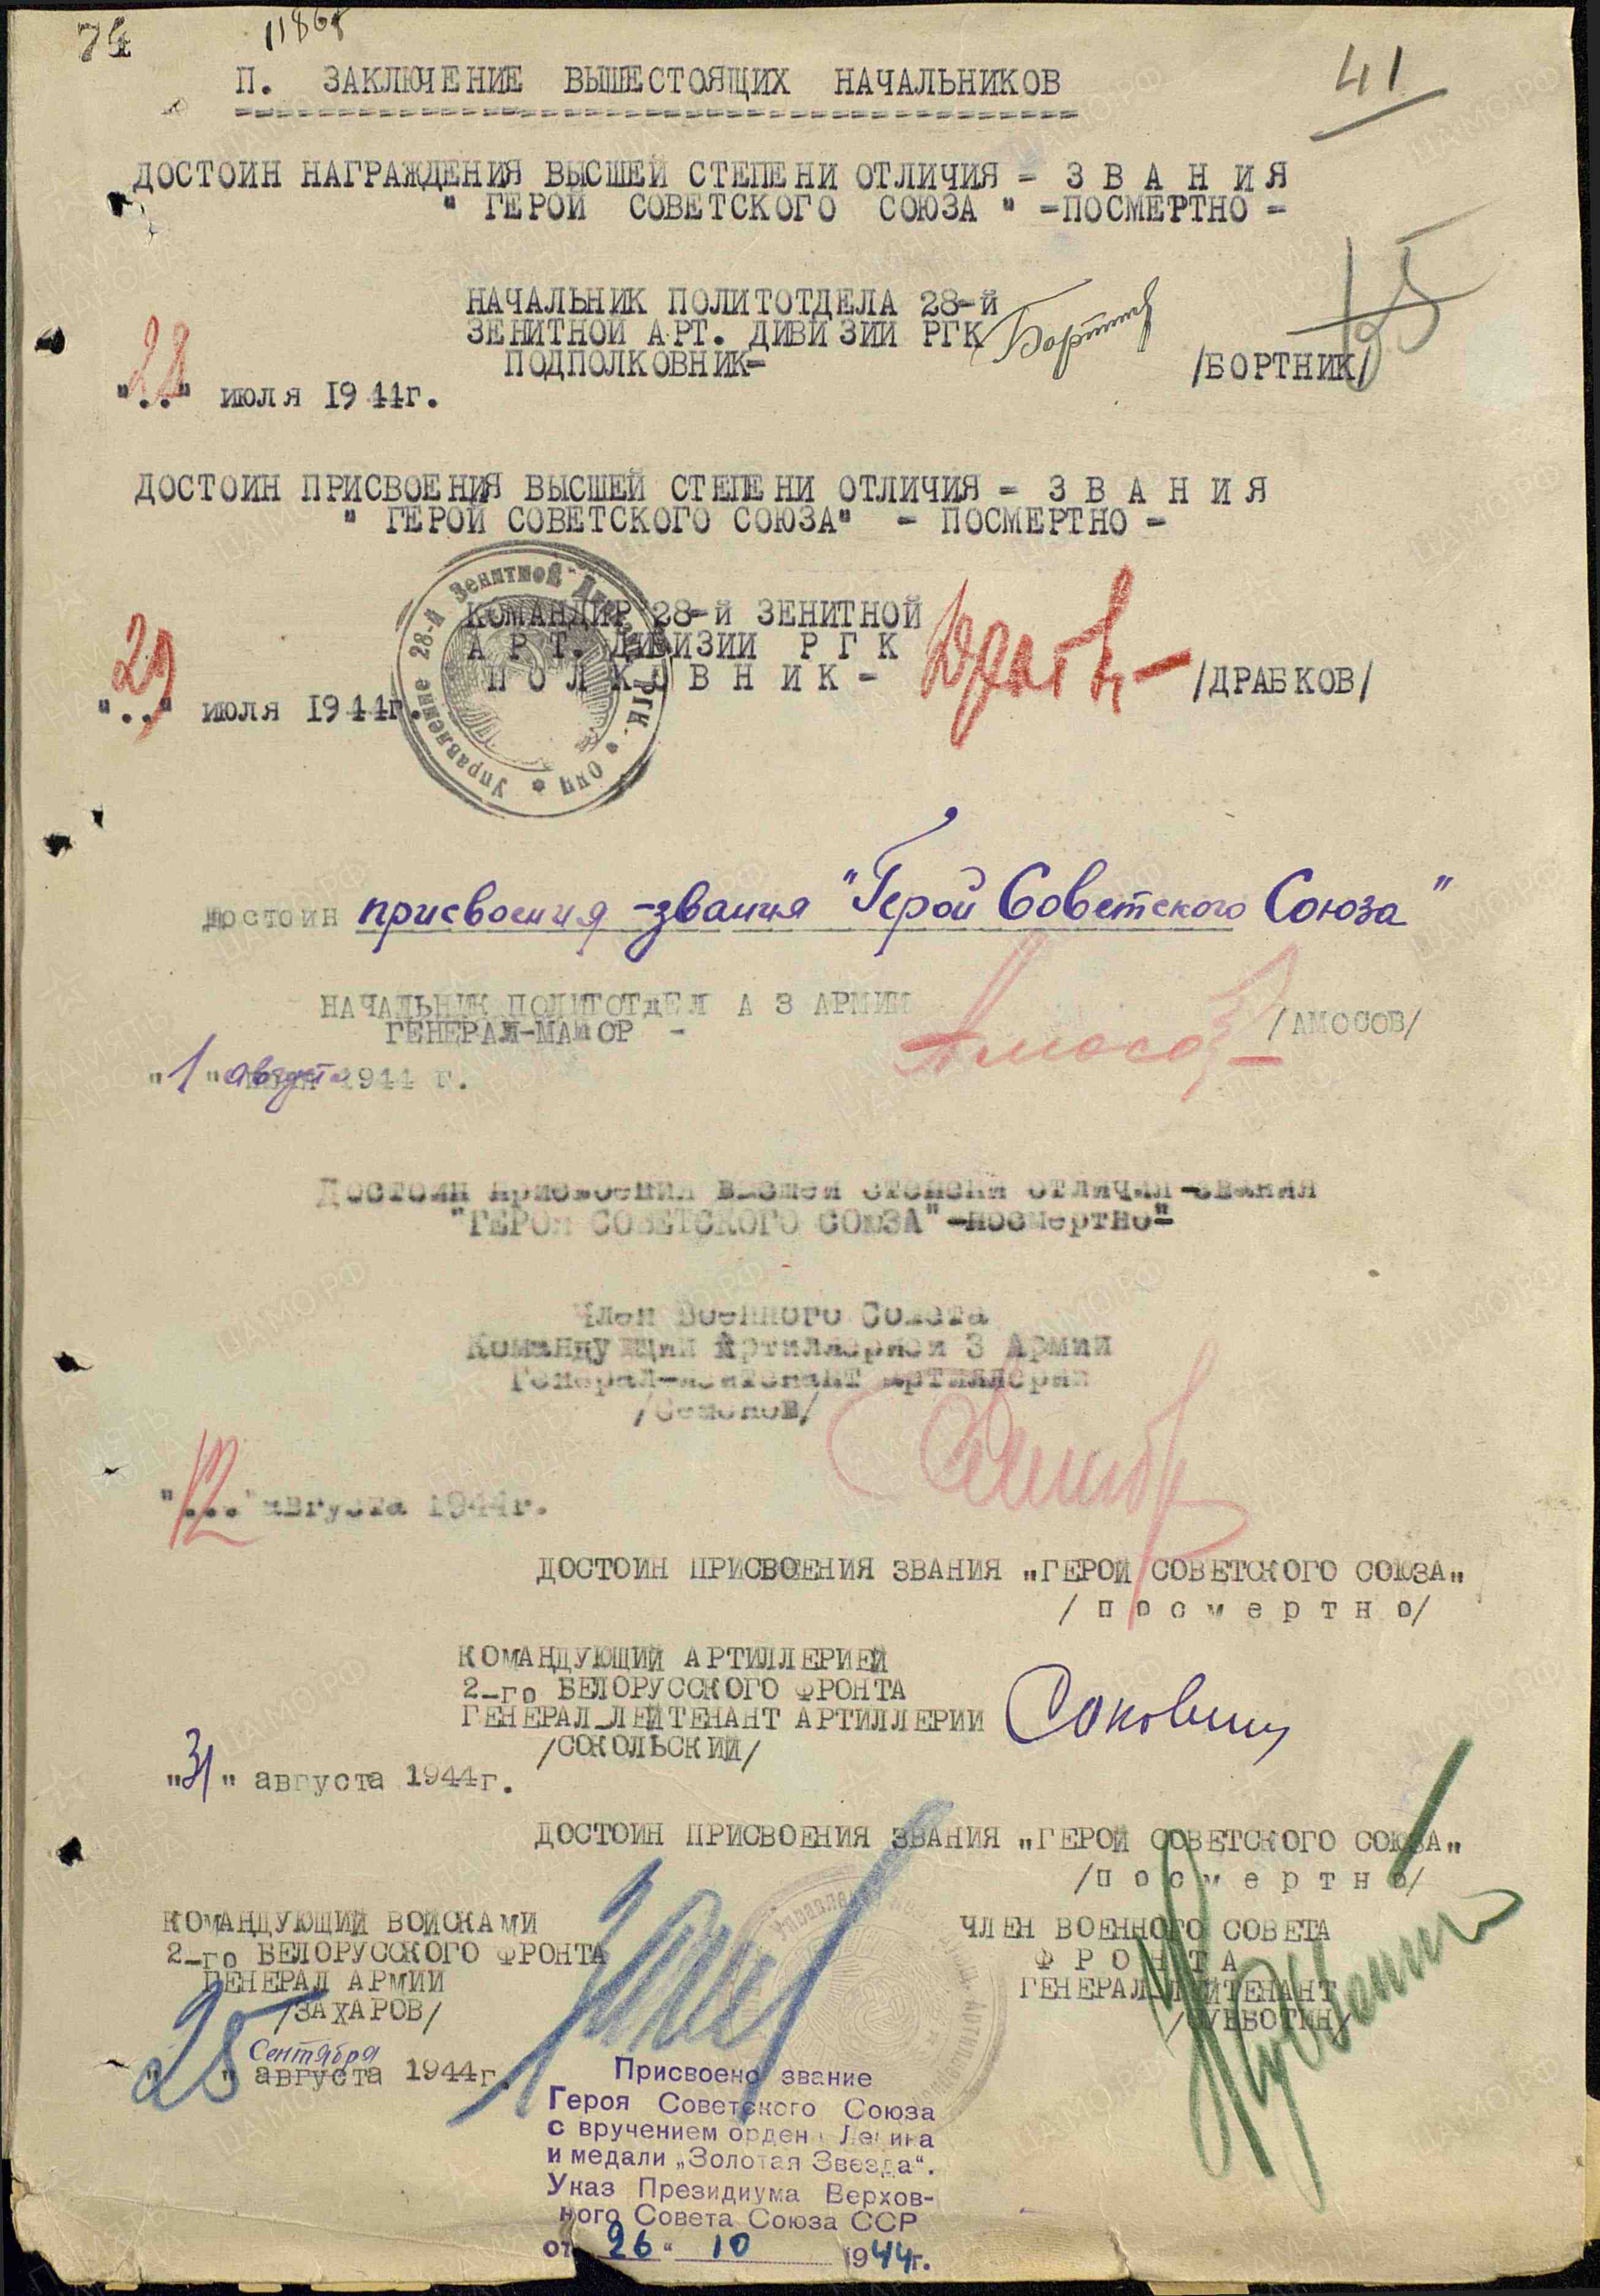 74
11868
41
П. ЗАКЛЮЧЕНИЕ ВЫШЕСТОЯЩИХ НАЧАЛЬНИКОВ
ДОСТОИН НАГРАЖДЕНИЯ ВЫСШЕЙ СТЕПЕНИ ОТЛИЧИЯ - З В А Н И Я
" ГЕРОЙ СОВЕТСКОГО СОЮЗА " -ПОСМЕРТНО -
НАЧАЛЬНИК ПОЛИТОТДЕЛА 28-й
ЗЕНИТНОЙ АРТ. ДИВИЗИИ РГК
ПОДПОЛКОВНИК-
/БОРТНИК/
"28" июля 1944г.
ДОСТОИН ПРИСВОЕНИЯ ВЫСШЕЙ СТЕПЕНИ ОТЛИЧИЯ - З В А Н И Я
" ГЕРОЙ СОВЕТСКОГО СОЮЗА" - ПОСМЕРТНО -
КОМАНДИР 28-й ЗЕНИТНОЙ
А Р Т. ДИВИЗИИ Р Г К
П О Л К О В Н И К -
/ДРАБКОВ/
"29" июля 1944г.
достоин присвоения -звания "Герой Советского Союза"
НАЧАЛЬНИК ПОЛИТОТДЕЛ А 3 АРМИИ
ГЕНЕРАЛ-МАЙОР -
/АМОСОВ/
"1" августа 1944 г.
Достоин присвоения высшей степени отличия -звания
"ГЕРОЯ СОВЕТСКОГО СОЮЗА" -посмертно"
Член Военного Совета
Командующий Артиллерией 3 Армии
Генерал-лейтенант артиллерии
/Семенов/
"12" августа 1944г.
ДОСТОИН ПРИСВОЕНИЯ ЗВАНИЯ „ГЕРОЙ СОВЕТСКОГО СОЮЗА„
/ п о с м е р т н о/
КОМАНДУЮЩИЙ АРТИЛЛЕРИЕЙ
2-го БЕЛОРУССКОГО ФРОНТА
ГЕНЕРАЛ-ЛЕЙТЕНАНТ АРТИЛЛЕРИИ
/СОКОЛЬСКИЙ/
„31„ августа 1944г.
ДОСТОИН ПРИСВОЕНИЯ ЗВАНИЯ „ГЕРОЙ СОВЕТСКОГО СОЮЗА„
/п о с м е р т н о/
КОМАНДУЮЩИЙ ВОЙСКАМИ
2-го БЕЛОРУССКОГО ФРОНТА
ГЕНЕРАЛ АРМИИ
/ЗАХАРОВ/
ЧЛЕН ВОЕННОГО СОВЕТА
Ф Р О Н Т А
ГЕНЕРАЛ-ЛЕЙТЕНАНТ
/СУББОТИН/
Сентября
„25„ августа 1944г.
Присвоено звание
Героя Советского Союза
с вручением орден Ленина
и медали „Золотая Звезда“.
Указ Президиума Верхов-
ного Совета Союза ССР
от 26 “ 10 1944г.